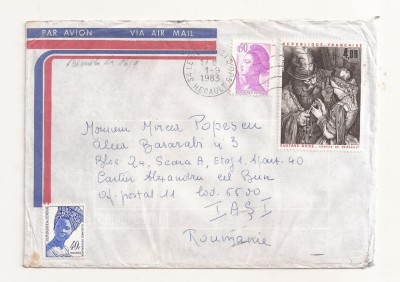 PAR AVION VIA AIR MAIL
34 HERAULT
1983
REPUBLIQUE FRANÇAISE
4,00
GUSTAVE DORÉ
Monsieur Mircea Popescu
Aleea Basarabi n°3
Bloc 24, Scara A, Etaj 1, Apart. 40
Cartier Alexandru cel Bun
Of. postal 11 cod. 6600
IAŞI
Roumanie